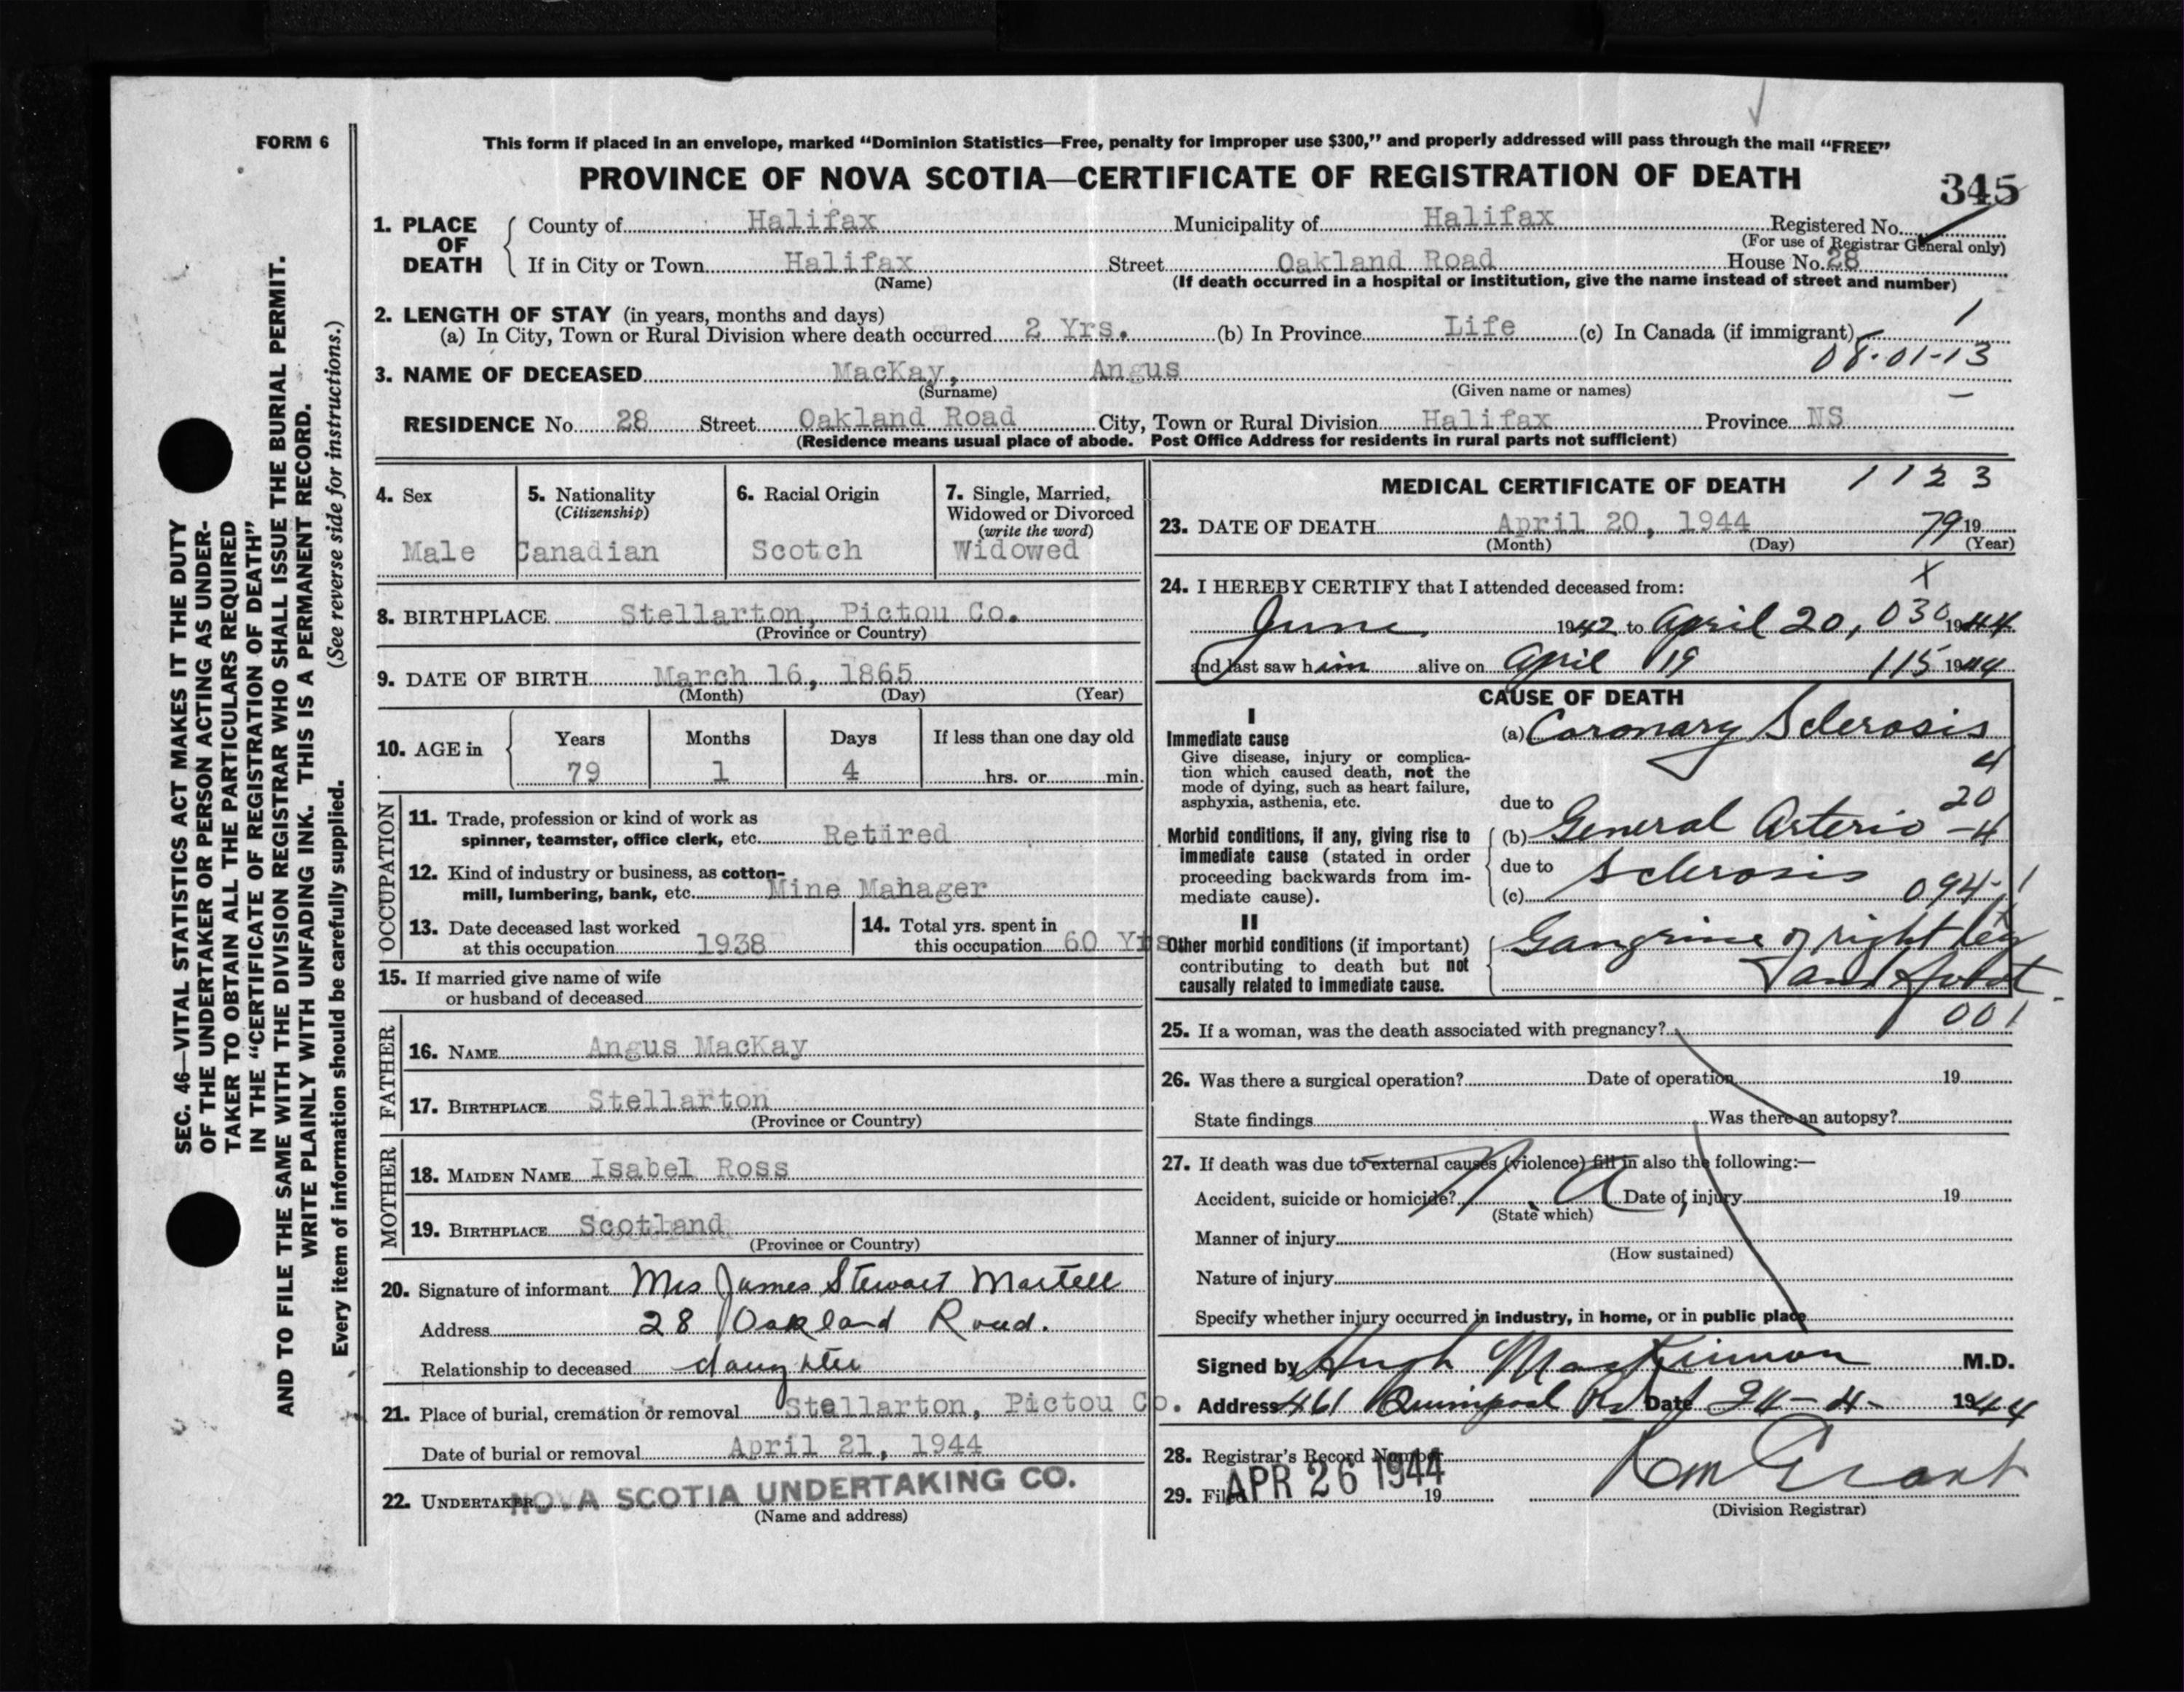 FORM 6
This form if placed in an envelope, marked “Dominion Statistics—Free, penalty for improper use $300,” and properly addressed will pass through the mail “FREE”
PROVINCE OF NOVA SCOTIA—CERTIFICATE OF REGISTRATION OF DEATH
345
1. PLACE OF DEATH
County of Halifax Municipality of Halifax Registered No.
(For use of Registrar General only)
If in City or Town Halifax Street Oakland Road House No. 28
(Name) (If death occurred in a hospital or institution, give the name instead of street and number)
2. LENGTH OF STAY (in years, months and days)
(a) In City, Town or Rural Division where death occurred 2 Yrs. (b) In Province Life (c) In Canada (if immigrant) 1
08-01-13
3. NAME OF DECEASED MacKay, Angus
(Surname) (Given name or names)
RESIDENCE No. 28 Street Oakland Road City, Town or Rural Division Halifax Province NS
(Residence means usual place of abode. Post Office Address for residents in rural parts not sufficient)
4. Sex
Male
5. Nationality
(Citizenship)
Canadian
6. Racial Origin
Scotch
7. Single, Married,
Widowed or Divorced
(write the word)
Widowed
8. BIRTHPLACE Stellarton, Pictou Co.
(Province or Country)
9. DATE OF BIRTH March 16, 1865
(Month) (Day) (Year)
10. AGE in Years Months Days If less than one day old
79 1 4 hrs. or min.
OCCUPATION
11. Trade, profession or kind of work as
spinner, teamster, office clerk, etc. Retired
12. Kind of industry or business, as cotton-
mill, lumbering, bank, etc. Mine Mahager
13. Date deceased last worked
at this occupation 1938
14. Total yrs. spent in
this occupation 60 Yrs
15. If married give name of wife
or husband of deceased
FATHER
16. NAME Angus MacKay
17. BIRTHPLACE Stellarton
(Province or Country)
MOTHER
18. MAIDEN NAME Isabel Ross
19. BIRTHPLACE Scotland
(Province or Country)
20. Signature of informant Mrs James Stewart Martell
Address 28 Oakland Road.
Relationship to deceased daughter
21. Place of burial, cremation or removal Stellarton, Pictou Co.
Date of burial or removal April 21, 1944
22. UNDERTAKER NOVA SCOTIA UNDERTAKING CO.
(Name and address)
MEDICAL CERTIFICATE OF DEATH 1123
23. DATE OF DEATH April 20, 1944 79 19
(Month) (Day) (Year)
24. I HEREBY CERTIFY that I attended deceased from: X
June 1942 to April 20, 030 1944
and last saw him alive on April 19 115 1944
CAUSE OF DEATH
I
Immediate cause
Give disease, injury or complica-
tion which caused death, not the
mode of dying, such as heart failure,
asphyxia, asthenia, etc.
(a) Coronary Sclerosis
4
due to 20
Morbid conditions, if any, giving rise to
immediate cause (stated in order
proceeding backwards from im-
mediate cause).
(b) General Arterio -4
due to Sclerosis
(c) 094-1
II
Other morbid conditions (if important)
contributing to death but not
causally related to immediate cause.
Gangrine of right leg
and foot
25. If a woman, was the death associated with pregnancy? 001
26. Was there a surgical operation? Date of operation 19
State findings Was there an autopsy?
27. If death was due to external causes (violence) fill in also the following:—
Accident, suicide or homicide? N.A Date of injury 19
(State which)
Manner of injury
(How sustained)
Nature of injury
Specify whether injury occurred in industry, in home, or in public place
Signed by Hugh MacKinnon M.D.
Address 461 Quinpool Rd Date 24-4- 1944
28. Registrar’s Record Number
29. Filed APR 26 1944 19
Grant
(Division Registrar)
SEC. 46—VITAL STATISTICS ACT MAKES IT THE DUTY
OF THE UNDERTAKER OR PERSON ACTING AS UNDER-
TAKER TO OBTAIN ALL THE PARTICULARS REQUIRED
IN THE “CERTIFICATE OF REGISTRATION OF DEATH”
AND TO FILE THE SAME WITH THE DIVISION REGISTRAR WHO SHALL ISSUE THE BURIAL PERMIT.
WRITE PLAINLY WITH UNFADING INK. THIS IS A PERMANENT RECORD.
Every item of information should be carefully supplied. (See reverse side for instructions.)